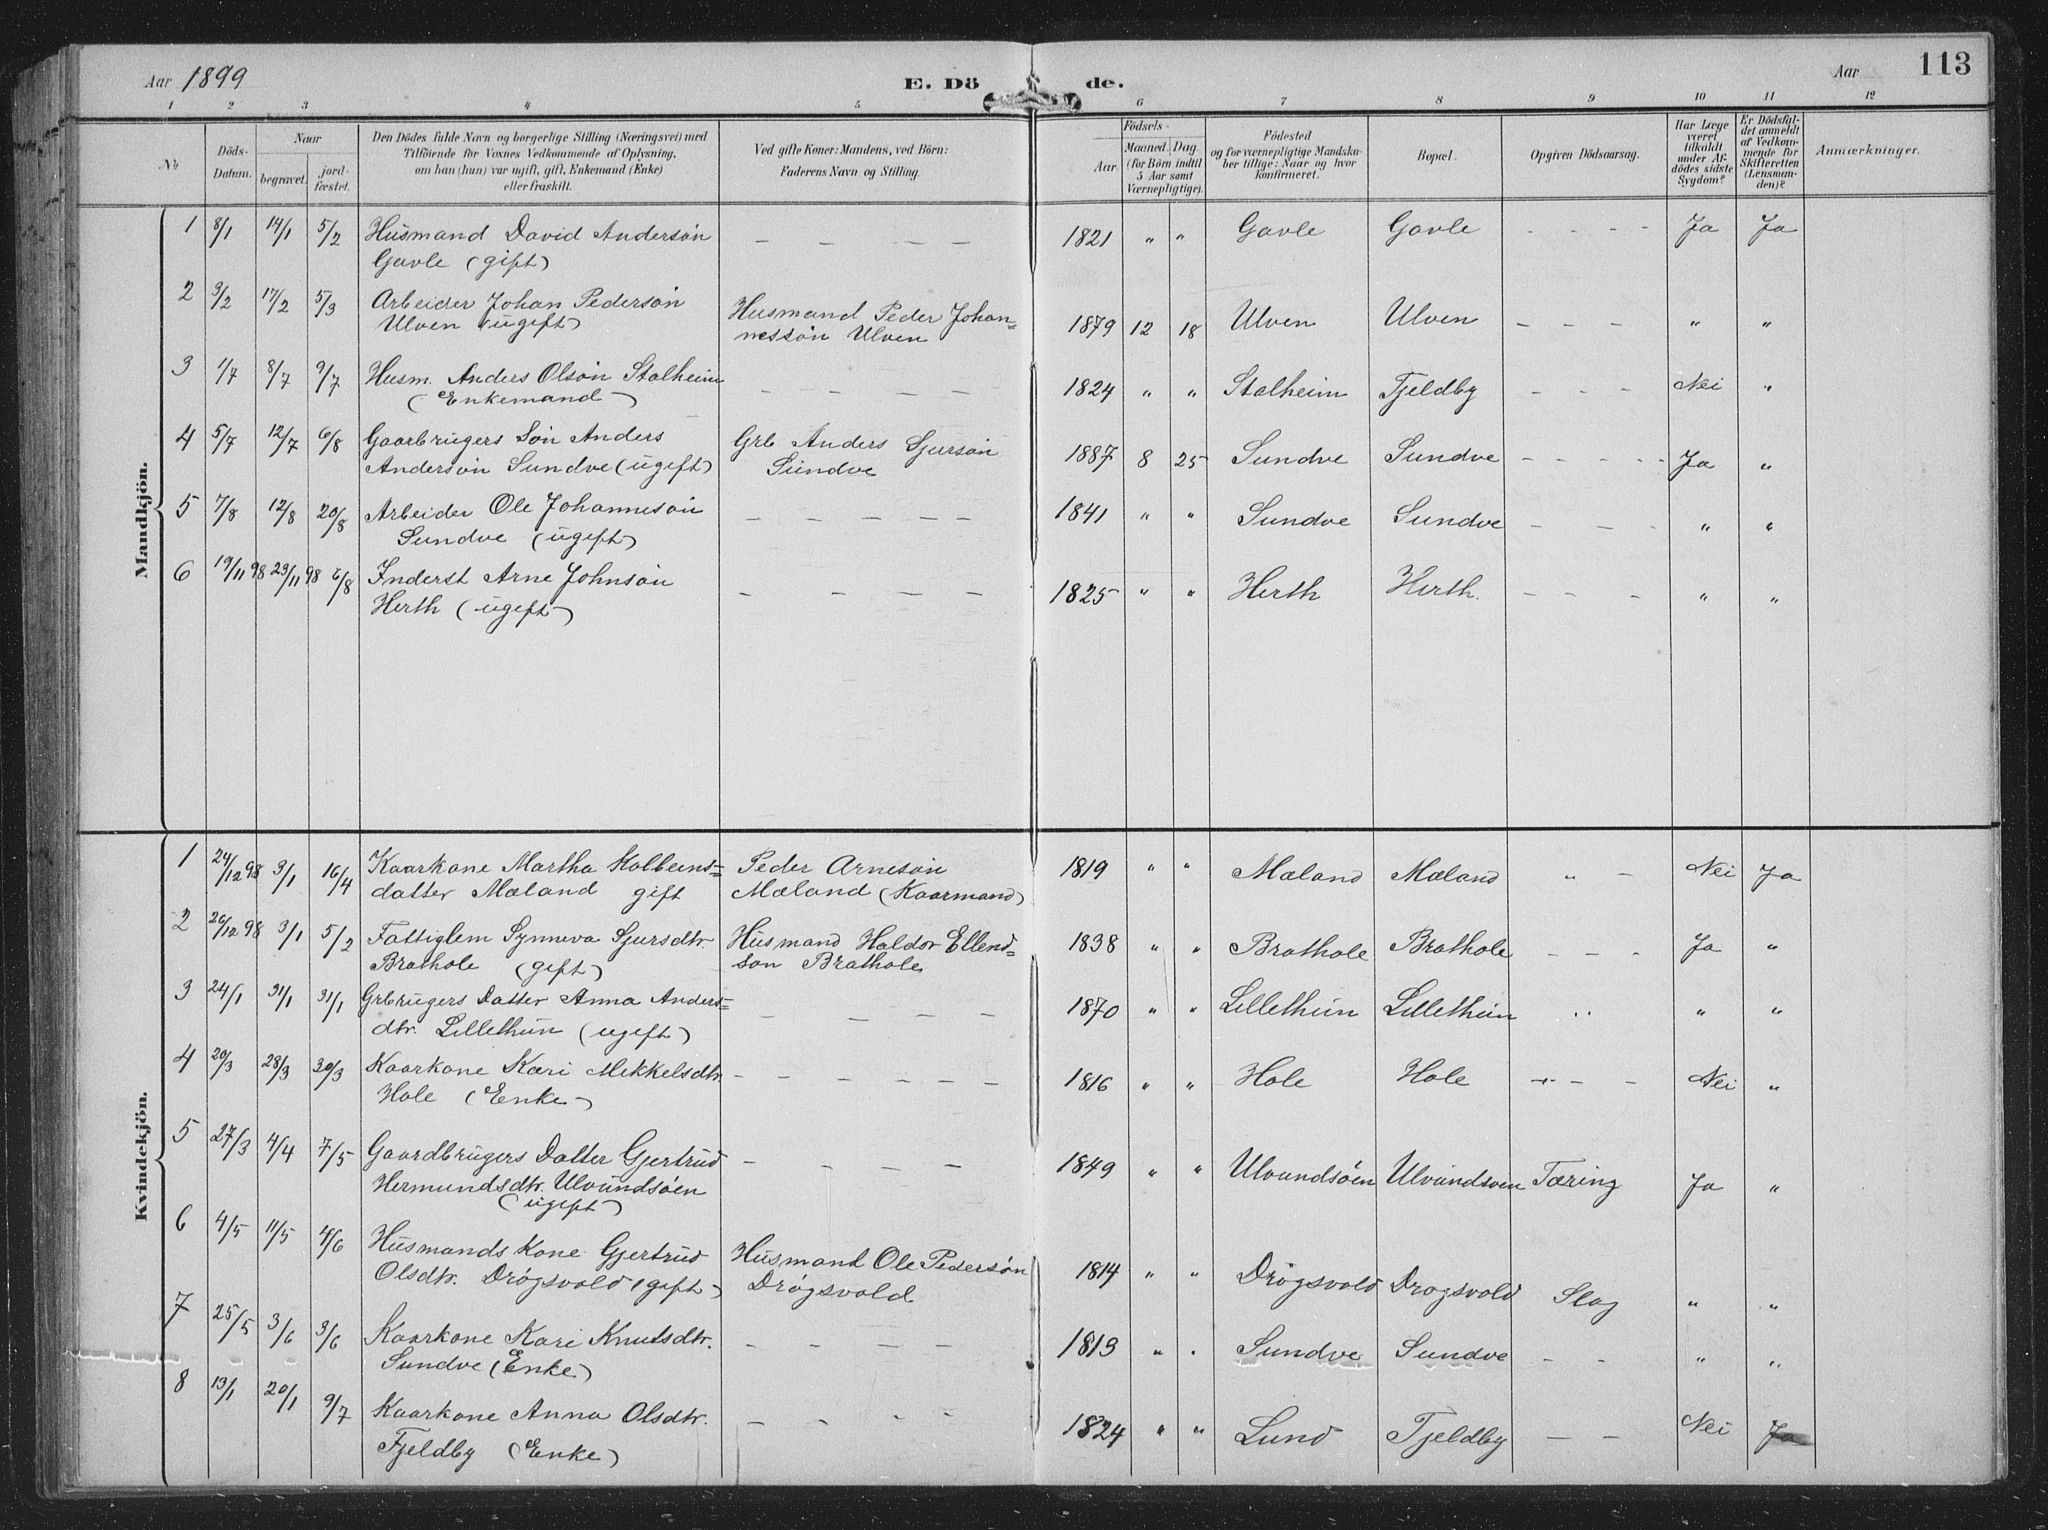 Aar 1899 E. Dö de. Aar 113
1 2 3 4 5 6 7 8 9 10 11 12
Nr.
Döds-
Datum.
Naar
begravet.
jord-
fæstet.
Den Dödes fulde Navn og borgerlige Stilling (Næringsvei) med
Tilföiende for Voxnes Vedkommende af Oplysning,
om han (hun) var ugift, gift, Enkemand (Enke)
eller fraskilt.
Ved gifte Koner: Mandens, ved Börn:
Faderens Navn og Stilling.
Födsels-
Aar.
Maaned. Dag.
(for Börn indtil
5 Aar samt
Værnepligtige).
Födested
og for værnepligtige Mandska-
ber tillige: Naar og hvor
konfirmeret.
Bopæl.
Opgiven Dödsaarsag.
Har Læge
været
tilkaldt
under Af-
dödes sidste
Sygdom?
Er Dödsfal-
det anmeldt
af Vedkom-
mende for
Skifteretten
(Lensman-
den)?
Anmærkninger.
Mandkjön.
1 8/1 14/1 5/2 Husmand David Andersön — — — — 1821 " " Gavle Gavle - - - - Ja Ja
Gavle (gift)
2 9/2 17/2 5/3 Arbeider Johan Pedersön Husmand Peder Johan= 1879 12 18 Ulven Ulven - - - " "
Ulven (ugift) nessön Ulven
3 1/7 8/7 9/7 Husm. Anders Olsön Stalheim — — — — 1824 " " Stalheim Fjeldby - - - Nei "
(Enkemand)
4 5/7 12/7 6/8 Gaarbrugers Sön Anders Grb Anders Sjursön 1887 8 25 Sundve Sundve - - - - Ja "
Andersön Sundve (ugift) Sundve
5 7/8 12/8 20/8 Arbeider Ole Johannesön — — — — — 1841 " " Sundve Sundve - - - " "
Sundve (ugift)
6 19/11 98 23/11 98 6/8 Inderst Arne Johnsön — — — — 1825 " " Herth Herth. - - - " "
Herth (ugift)
Kvindekjön.
1 24/12 98 3/1 16/4 Kaarkone Martha Kolbeins= Peder Arnesön 1819 " " Mæland Mæland " - - Nei Ja
datter Mæland gift Mæland (Kaarmand)
2 26/12 98 3/1 5/2 Fattiglem Synneva Sjursdtr. Husmand Haldor Ellend= 1838 " " Brathole Brathole - - - Ja "
Brathole (gift) son Brathole
3 24/1 31/1 31/1 Grbrugers Datter Anna Anders= — — — — — 1870 " " Lillethun Lillethun " " "
dtr. Lillethun (ugift)
4 20/3 28/3 30/3 Kaarkone Kari Mikkelsdtr. — — — — — — 1816 " " Hole Hole - - - Nei "
Hole (Enke)
5 27/3 4/4 7/5 Gaardbrugers Datter Gjertrud — — — — 1849 " " Ulvundsöen Ulvundsven Tæring Ja "
Hermundsdtr. Ulvundsöen
(ugift)
6 4/5 11/5 4/6 Husmands Kone Gjertrud Husmand Ole Pedersön 1814 " " Drögsvold Drogsvold Slag " "
Olsdtr. Drögsvold (gift) Drögsvold
7 25/5 3/6 3/6 Kaarkone Kari Knutsdtr. — — — — 1813 " " Sundve Sundve - - " "
Sundve (Enke)
8 13/1 20/1 9/7 Kaarkone Anna Olsdtr. — — — — 1824 " " Lund Fjeldby — — Nei Ja
Fjeldby (Enke)